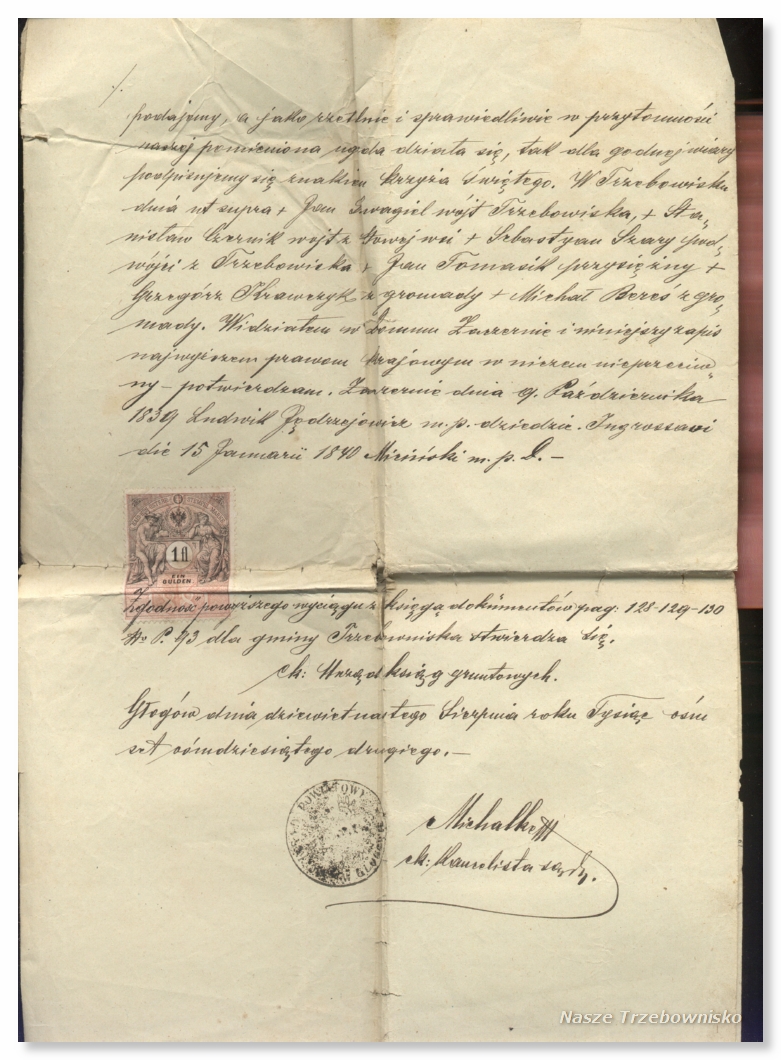 ./.
podajemy, a jako rzetelnie i sprawiedliwie w przytomności
naszej pomieniona ugoda działa się, tak dla godnej wiary
podpisujemy się znakiem krzyża świętego. W Trzebowisku
dnia ut supra + Jan Swagiel wójt Trzebowiska, + Sta„
nisław Czernik wójt z Nowej wsi + Sebastyan Szary pod„
wójci z Trzebowiska + Jan Tomasik przysiężny +
Grzegórz Krawczyk z gromady + Michał Bereś z gro„
mady. Widziałem w Domu Zaczernie i niniejszy zapis
najwyższem prawom krajowym w niczem nieprzeciw„
ny – potwierdzam. Zaczernie dnia 9. Października
1839 Ludwik Jędrzejowicz m. p. dziedzic. Ingrossavi
die 15 Januarii 1840 Miciński m. p. D. –
1 fl
EIN
GULDEN
Zgodność powyższego wyciągu z księgą dokumentów pag: 128-129-130
No P. 93 dla gminy Trzebowniska stwierdza się.
ck: Urząd ksiąg gruntowych.
Głogów dnia dziewietnastego Sierpnia roku Tysiąc ośm
set ośmdziesiątego drugiego. –
POWIATOWY
ck: Kancelista sąd.
Nasze Trzebownisko